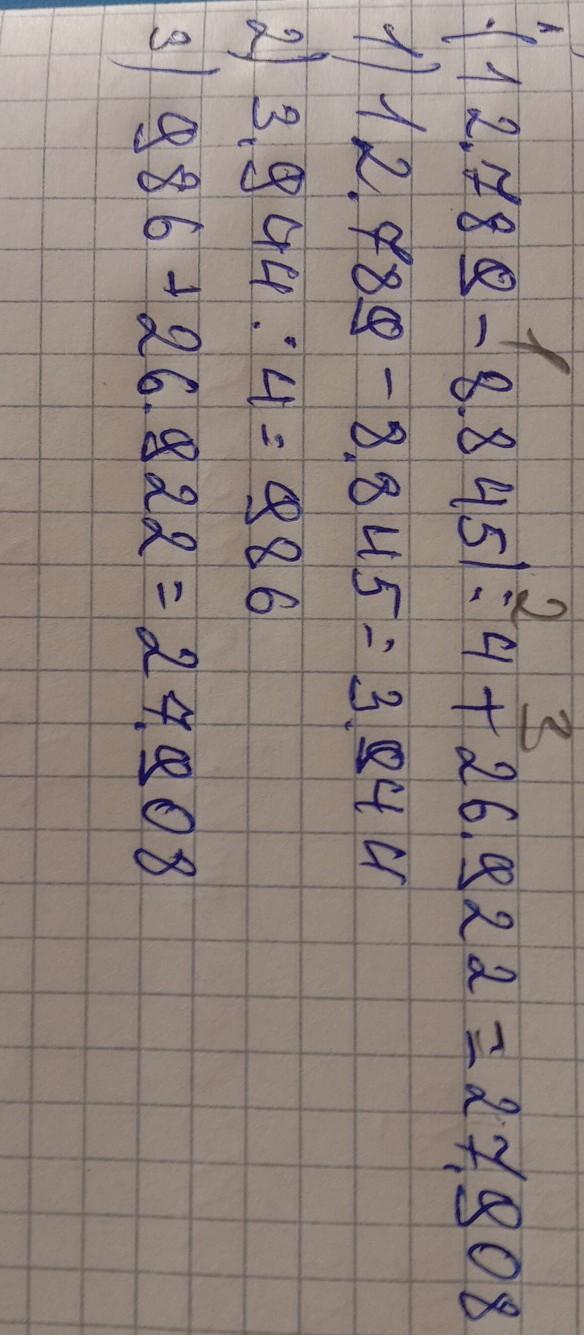 (12.789-8.845):4+26.922=27.908
1) 12.789-8.845=3.944
2) 3.944:4=986
3) 986+26.922=27.908
1 2 3